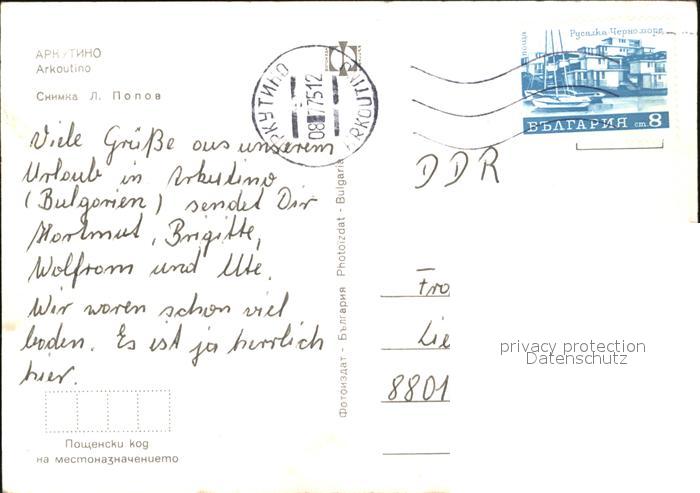 АРКУТИНО
Arkoutino
Снимка Л. Попов
Viele Grüße aus unserem
Urlaub in Arkutino
(Bulgarien) sendet Dir
Hartmut, Brigitte,
Wolfram und Ute.
Wir waren schon viel
baden. Es ist ja herrlich
hier.
Пощенски код
на местоназначението
Фотоиздат - България Photoizdat - Bulgaria
АРКУТИНО
08 775 12
ARKOUTINO
поща
Русалка Черномор
БЪЛГАРИЯ ст. 8
DDR
Fra
Lie
8801
privacy protection
Datenschutz